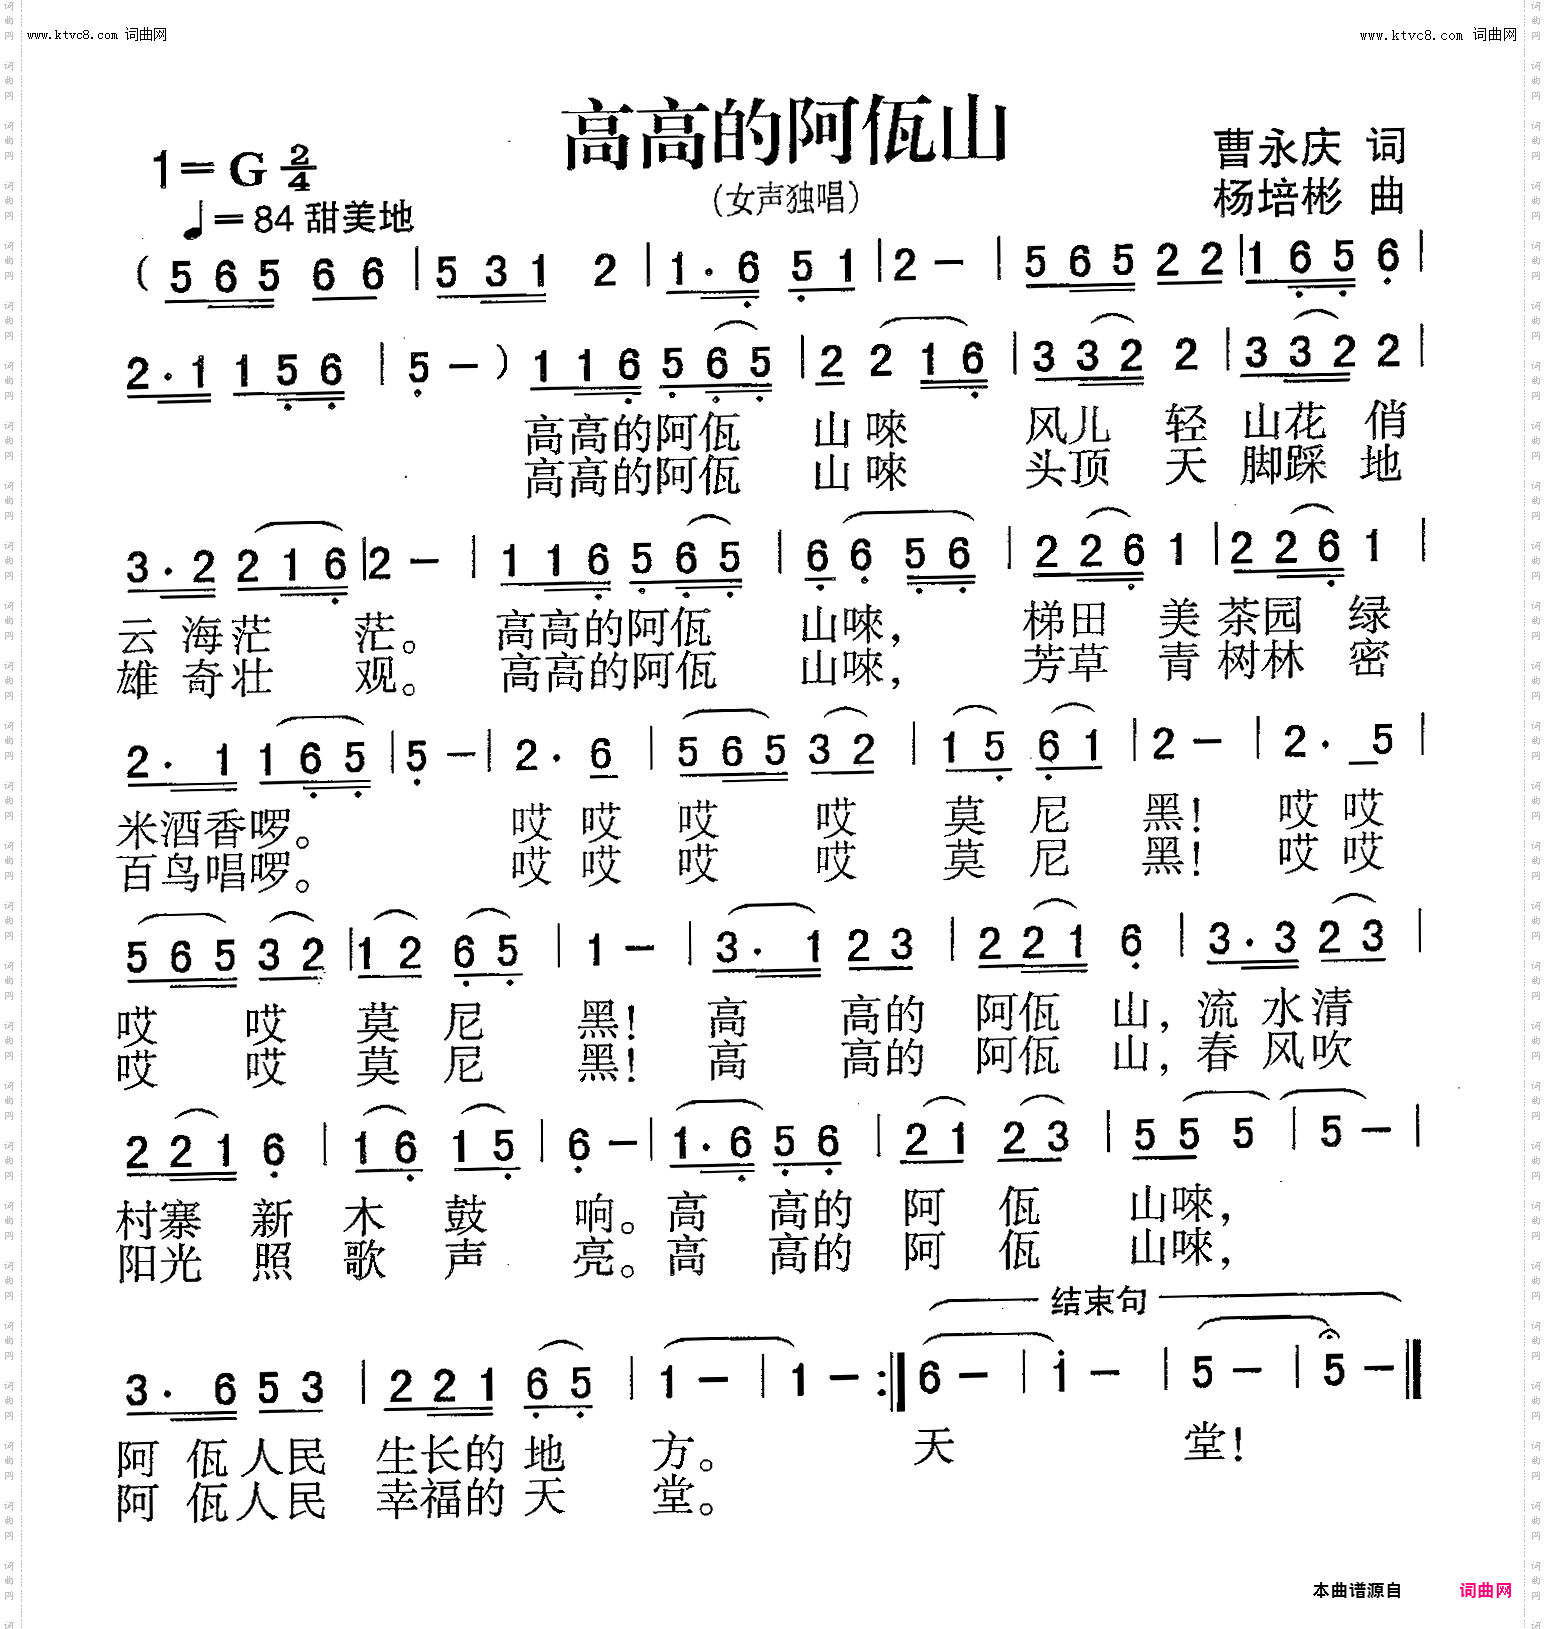 www.ktvc8.com 词曲网
www.ktvc8.com 词曲网
高高的阿佤山
(女声独唱)
1=G 2/4
♩=84 甜美地
曹永庆 词
杨培彬 曲
( 5 6 5 6 6 | 5 3 1 2 | 1 · 6 5 1 | 2 – | 5 6 5 2 2 | 1 6 5 6 |
2 · 1 1 5 6 | 5 – ) 1 1 6 5 6 5 | 2 2 1 6 | 3 3 2 2 | 3 3 2 2 |
高高的阿佤 山唻 风儿 轻 山花 俏
高高的阿佤 山唻 头顶 天 脚踩 地
3 · 2 2 1 6 | 2 – | 1 1 6 5 6 5 | 6 6 5 6 | 2 2 6 1 | 2 2 6 1 |
云 海茫 茫。 高高的阿佤 山唻, 梯田 美 茶园 绿
雄 奇壮 观。 高高的阿佤 山唻, 芳草 青 树林 密
2 · 1 1 6 5 | 5 – | 2 · 6 | 5 6 5 3 2 | 1 5 6 1 | 2 – | 2 · 5 |
米酒香啰。 哎 哎 哎 哎 莫 尼 黑! 哎 哎
百鸟唱啰。 哎 哎 哎 哎 莫 尼 黑! 哎 哎
5 6 5 3 2 | 1 2 6 5 | 1 – | 3 · 1 2 3 | 2 2 1 6 | 3 · 3 2 3 |
哎 哎 莫 尼 黑! 高 高的 阿佤 山, 流 水清
哎 哎 莫 尼 黑! 高 高的 阿佤 山, 春 风吹
2 2 1 6 | 1 6 1 5 | 6 – | 1 · 6 5 6 | 2 1 2 3 | 5 5 5 | 5 – |
村寨 新 木 鼓 响。高 高的 阿 佤 山唻,
阳光 照 歌 声 亮。高 高的 阿 佤 山唻,
结束句
3 · 6 5 3 | 2 2 1 6 5 | 1 – | 1 – :‖ 6 – | 1 – | 5 – | 5 – ‖
阿 佤人民 生长的 地 方。 天 堂!
阿 佤人民 幸福的 天 堂。
本曲谱源自 词曲网